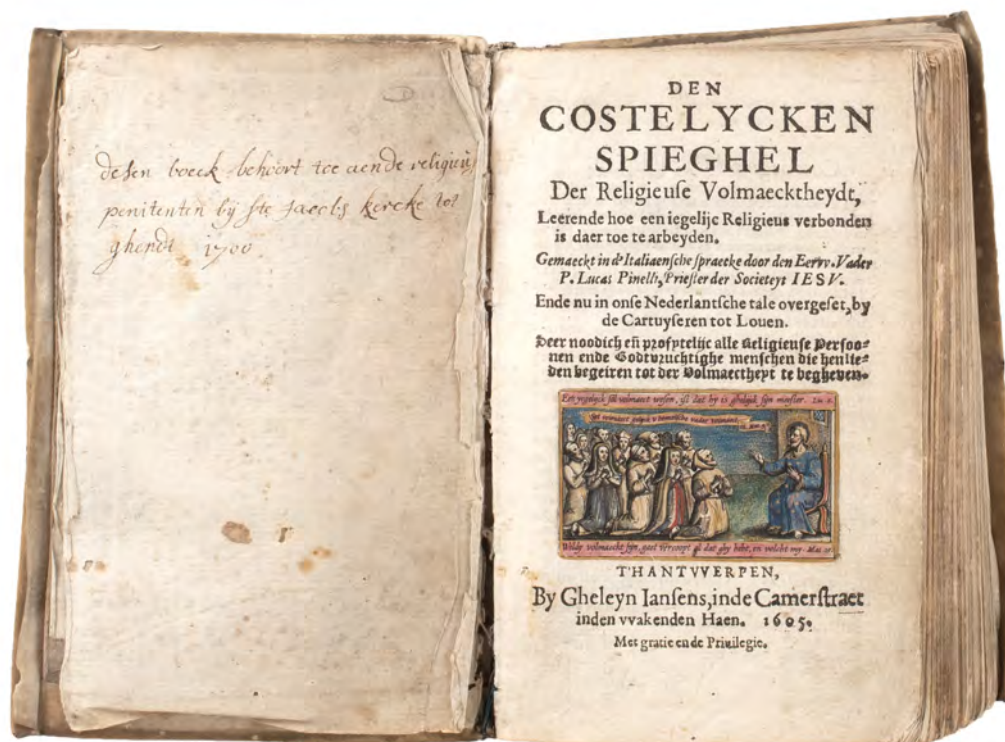 desen boeck behoort toe aende religieus
penitenten bij ste Jacobs kercke tot
ghendt 1700
DEN
COSTELYCKEN
SPIEGHEL
Der Religieuſe Volmaecktheydt,
Leerende hoe een iegelijc Religieus verbonden
is daer toe te arbeyden.
Gemaeckt in d'Italiaenſche ſpraecke door den Eervv. Vader
P. Lucas Pinelli, Prieſter der Societeyt IESV.
Ende nu in onſe Nederlantſche tale overgeſet, by
de Cartuyſeren tot Louen.
Seer noodich eñ profytelijc alle Religieuſe Perſoo-
nen ende Godtvruchtighe menſchen die henlie-
den begeiren tot der Volmaectheyt te begheven.
Een yegelyck sal volmaect wesen, ist dat hy is ghelyck syn meester.
Syt volmaect gelyck v hemelsche vader volmaect
Wildy volmaeckt syn, gaet vercoopt al dat ghy hebt, en volcht my. Mat. 19.
T'HANTVVERPEN,
By Gheleyn Ianſens, inde Camerſtraet
inden vvakenden Haen. 1605.
Met gratie ende Priuilegie.